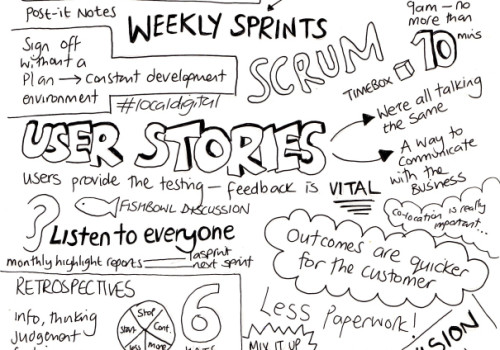 Post-it Notes
WEEKLY SPRINTS
9am – no
more than
10 mins
Sign off
without a
Plan → Constant development
environment
SCRUM
TIMEBOX
#localdigital
USER STORIES
We're all talking
the same
A way to
communicate
with the
Business
users provide the testing – feedback is VITAL
FISHBOWL DISCUSSION
Co-location is really
important...
Listen to everyone
monthly highlight reports
1 sprint
next sprint
Outcomes are quicker
for the customer
RETROSPECTIVES
info, thinking
Judgement
Stop
Start
Cont.
less
more
6
HATS
Less Paperwork!
MIX IT UP